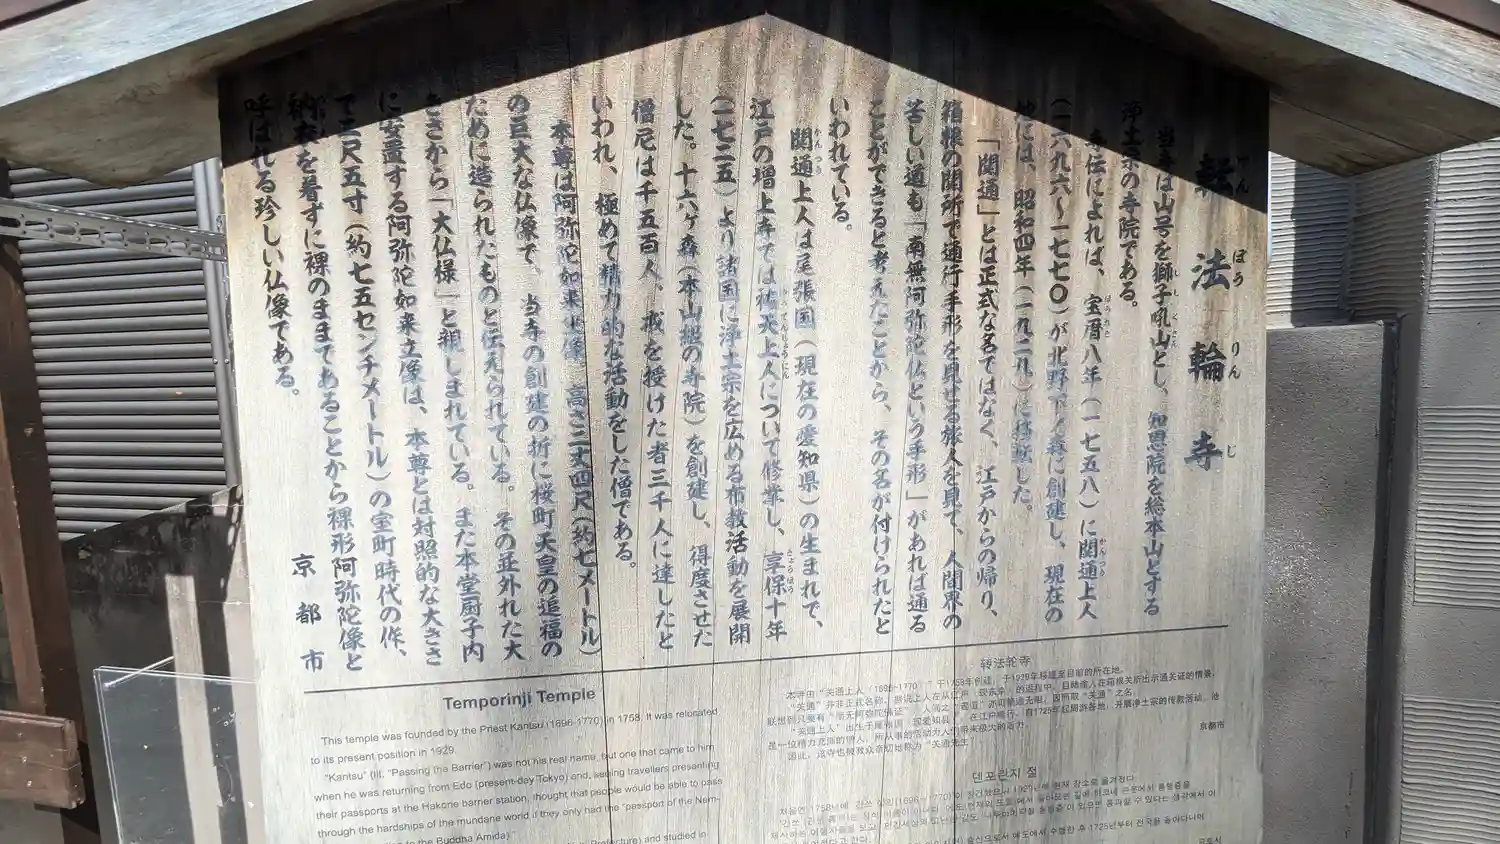 転法輪寺
てん ぽう りん じ
当寺は山号を獅子吼山とし、知恩院を総本山とする
浄土宗の寺院である。
寺伝によれば、宝暦八年(一七五八)に関通上人
(一六九六~一七七〇)が北野下ノ森に創建し、現在の
地には、昭和四年(一九二九)に移転した。
「関通」とは正式な名ではなく、江戸からの帰り、
箱根の関所で通行手形を見せる旅人を見て、人間界の
苦しい道も「南無阿弥陀仏という手形」があれば通る
ことができると考えたことから、その名が付けられたと
いわれている。
関通上人は尾張国(現在の愛知県)の生まれで、
江戸の増上寺では祐天上人について修業し、享保十年
(一七二五)より諸国に浄土宗を広める布教活動を展開
した。十六ヶ森(本山級の寺院)を創建し、得度させた
僧尼は千五百人、戒を授けた者三千人に達したと
いわれ、極めて精力的な活動をした僧である。
本尊は阿弥陀如来坐像、高さ二丈四尺(約七メートル)
の巨大な仏像で、当寺の創建の折に桜町天皇の追福の
ために造られたものと伝えられている。その並外れた大
きさから「大仏様」と親しまれている。また本堂厨子内
に安置する阿弥陀如来立像は、本尊とは対照的な大きさ
で二尺五寸(約七五センチメートル)の室町時代の作、
衲衣を着ずに裸のままであることから裸形阿弥陀像と
呼ばれる珍しい仏像である。
京都市
Temporinji Temple
This temple was founded by the Priest Kantsu (1696-1770) in 1758. It was relocated
to its present position in 1929.
"Kantsu" (lit. "Passing the Barrier") was not his real name, but one that came to him
when he was returning from Edo (present-day Tokyo) and, seeing travellers presenting
their passports at the Hakone barrier station, thought that people would be able to pass
through the hardships of the mundane world if they only had the "passport of the Nem-
to the Buddha Amida)."
Prefecture) and studied in
转法轮寺
本寺由"关通上人(1696-1770)"于1758年创建,于1929年移建至目前的所在地。
京都市
덴포린지 절